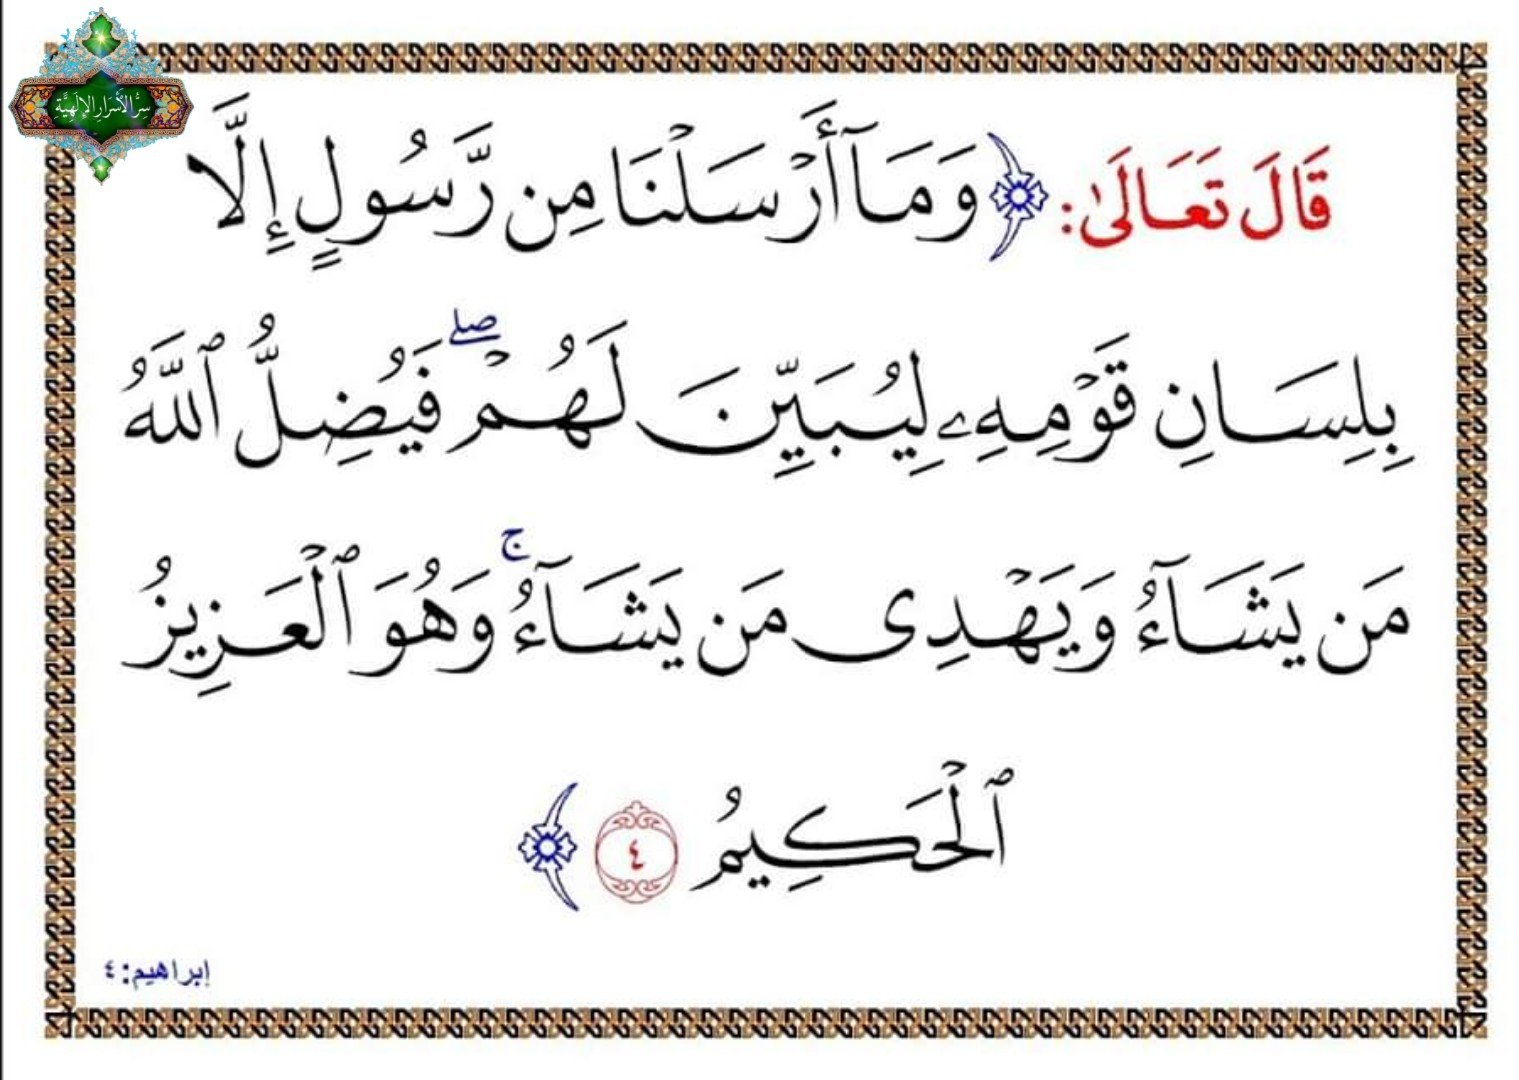 سِرُّ الأَسْرَارِ الإِلَهِيَّةِ
قَالَ تَعَالَىٰ: ﴿وَمَآ أَرۡسَلۡنَا مِن رَّسُولٍ إِلَّا
بِلِسَانِ قَوۡمِهِۦ لِيُبَيِّنَ لَهُمۡۖ فَيُضِلُّ ٱللَّهُ
مَن يَشَآءُ وَيَهۡدِي مَن يَشَآءُۚ وَهُوَ ٱلۡعَزِيزُ
ٱلۡحَكِيمُ ٤﴾
إبراهيم: ٤